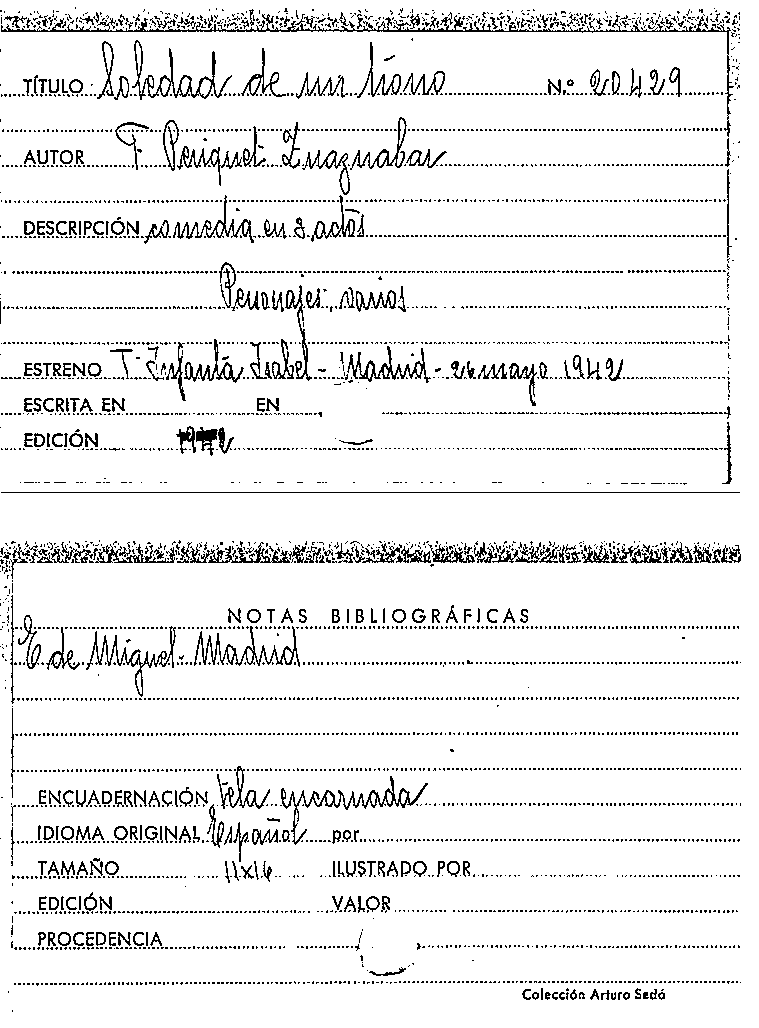 TÍTULO Soledad de un trono N.º 20429
AUTOR F. Periquet Zuaznabar
DESCRIPCIÓN comedia en 3 actos
Personajes, varios
ESTRENO T. Infanta Isabel - Madrid - 26 mayo 1942
ESCRITA EN EN
EDICIÓN 1942
NOTAS BIBLIOGRÁFICAS
E de Miguel - Madrid
ENCUADERNACIÓN tela encarnada
IDIOMA ORIGINAL Español por
TAMAÑO 11x16 ILUSTRADO POR
EDICIÓN VALOR
PROCEDENCIA
Colección Arturo Sedó